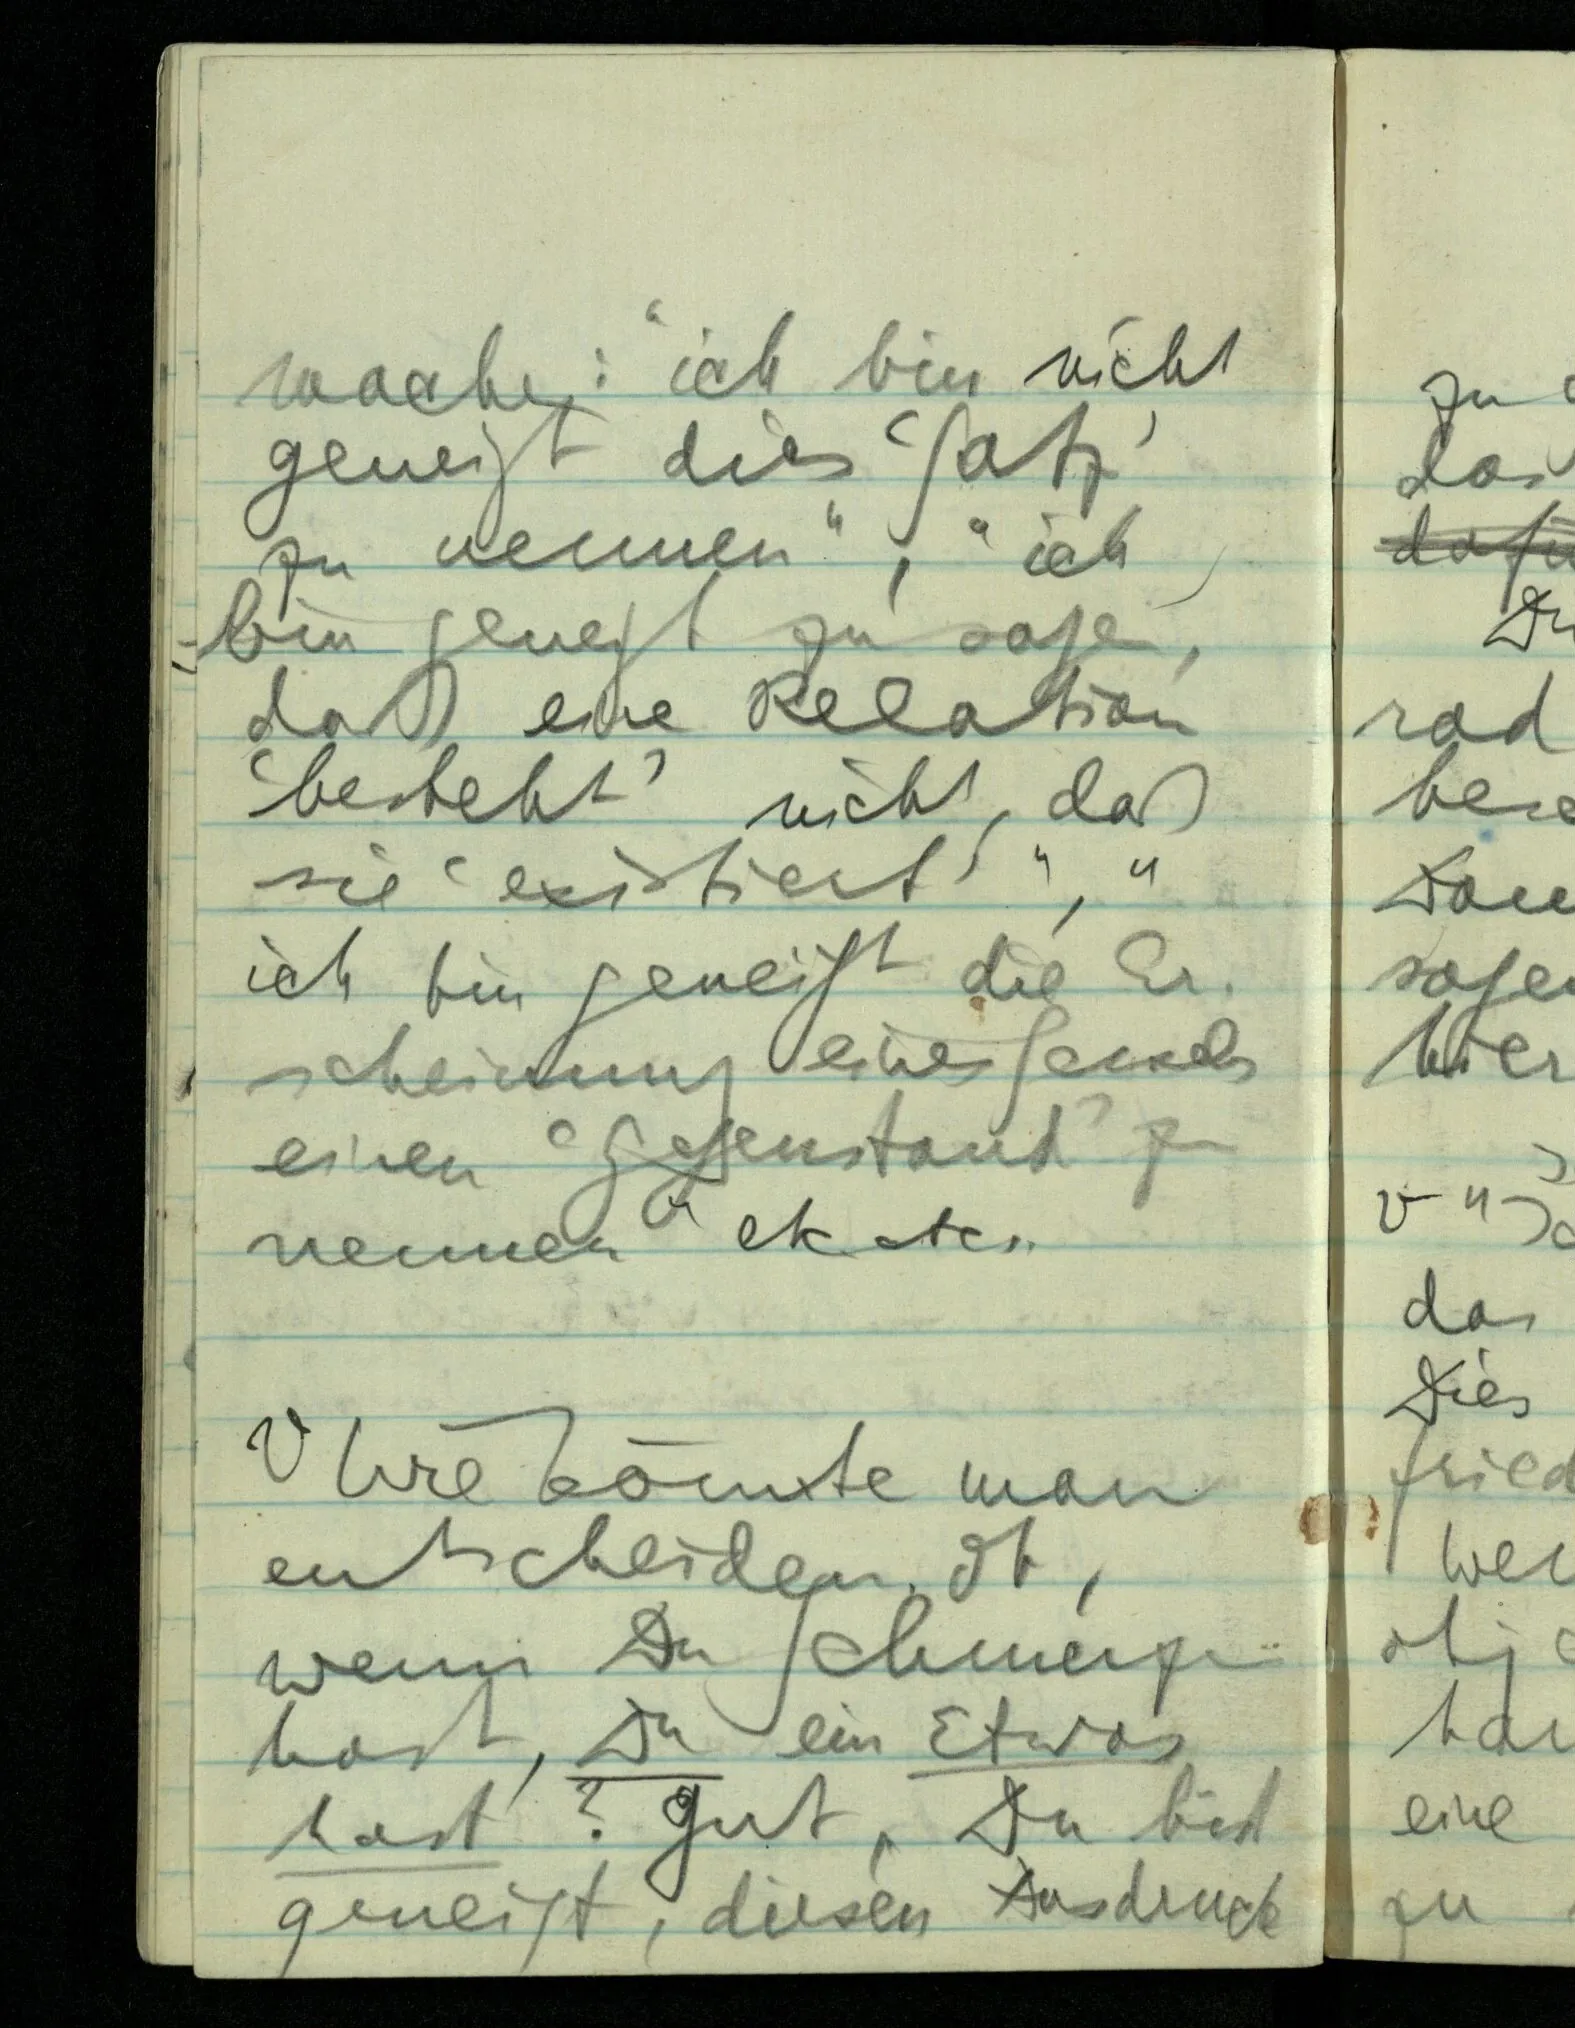 mache: "ich bin nicht
geneigt dies 'Satz'
zu nennen", "ich
bin geneigt zu sagen,
daß eine Relation
'besteht' nicht, daß
sie 'existiert'", "
ich bin geneigt die Er-
scheinung eines
einen 'Gegenstand' zu
nennen" etc. etc..
V Wie könnte man
entscheiden, ob,
wenn Du Schmerzen
hast, Du ein Etwas
hast? gut, Du bist
geneigt, diesen Ausdruck
zu
das
Du
rad
besc
Dann
sagen
hier
V "
das
Dies
fried
wer
obje
han
eine
zu